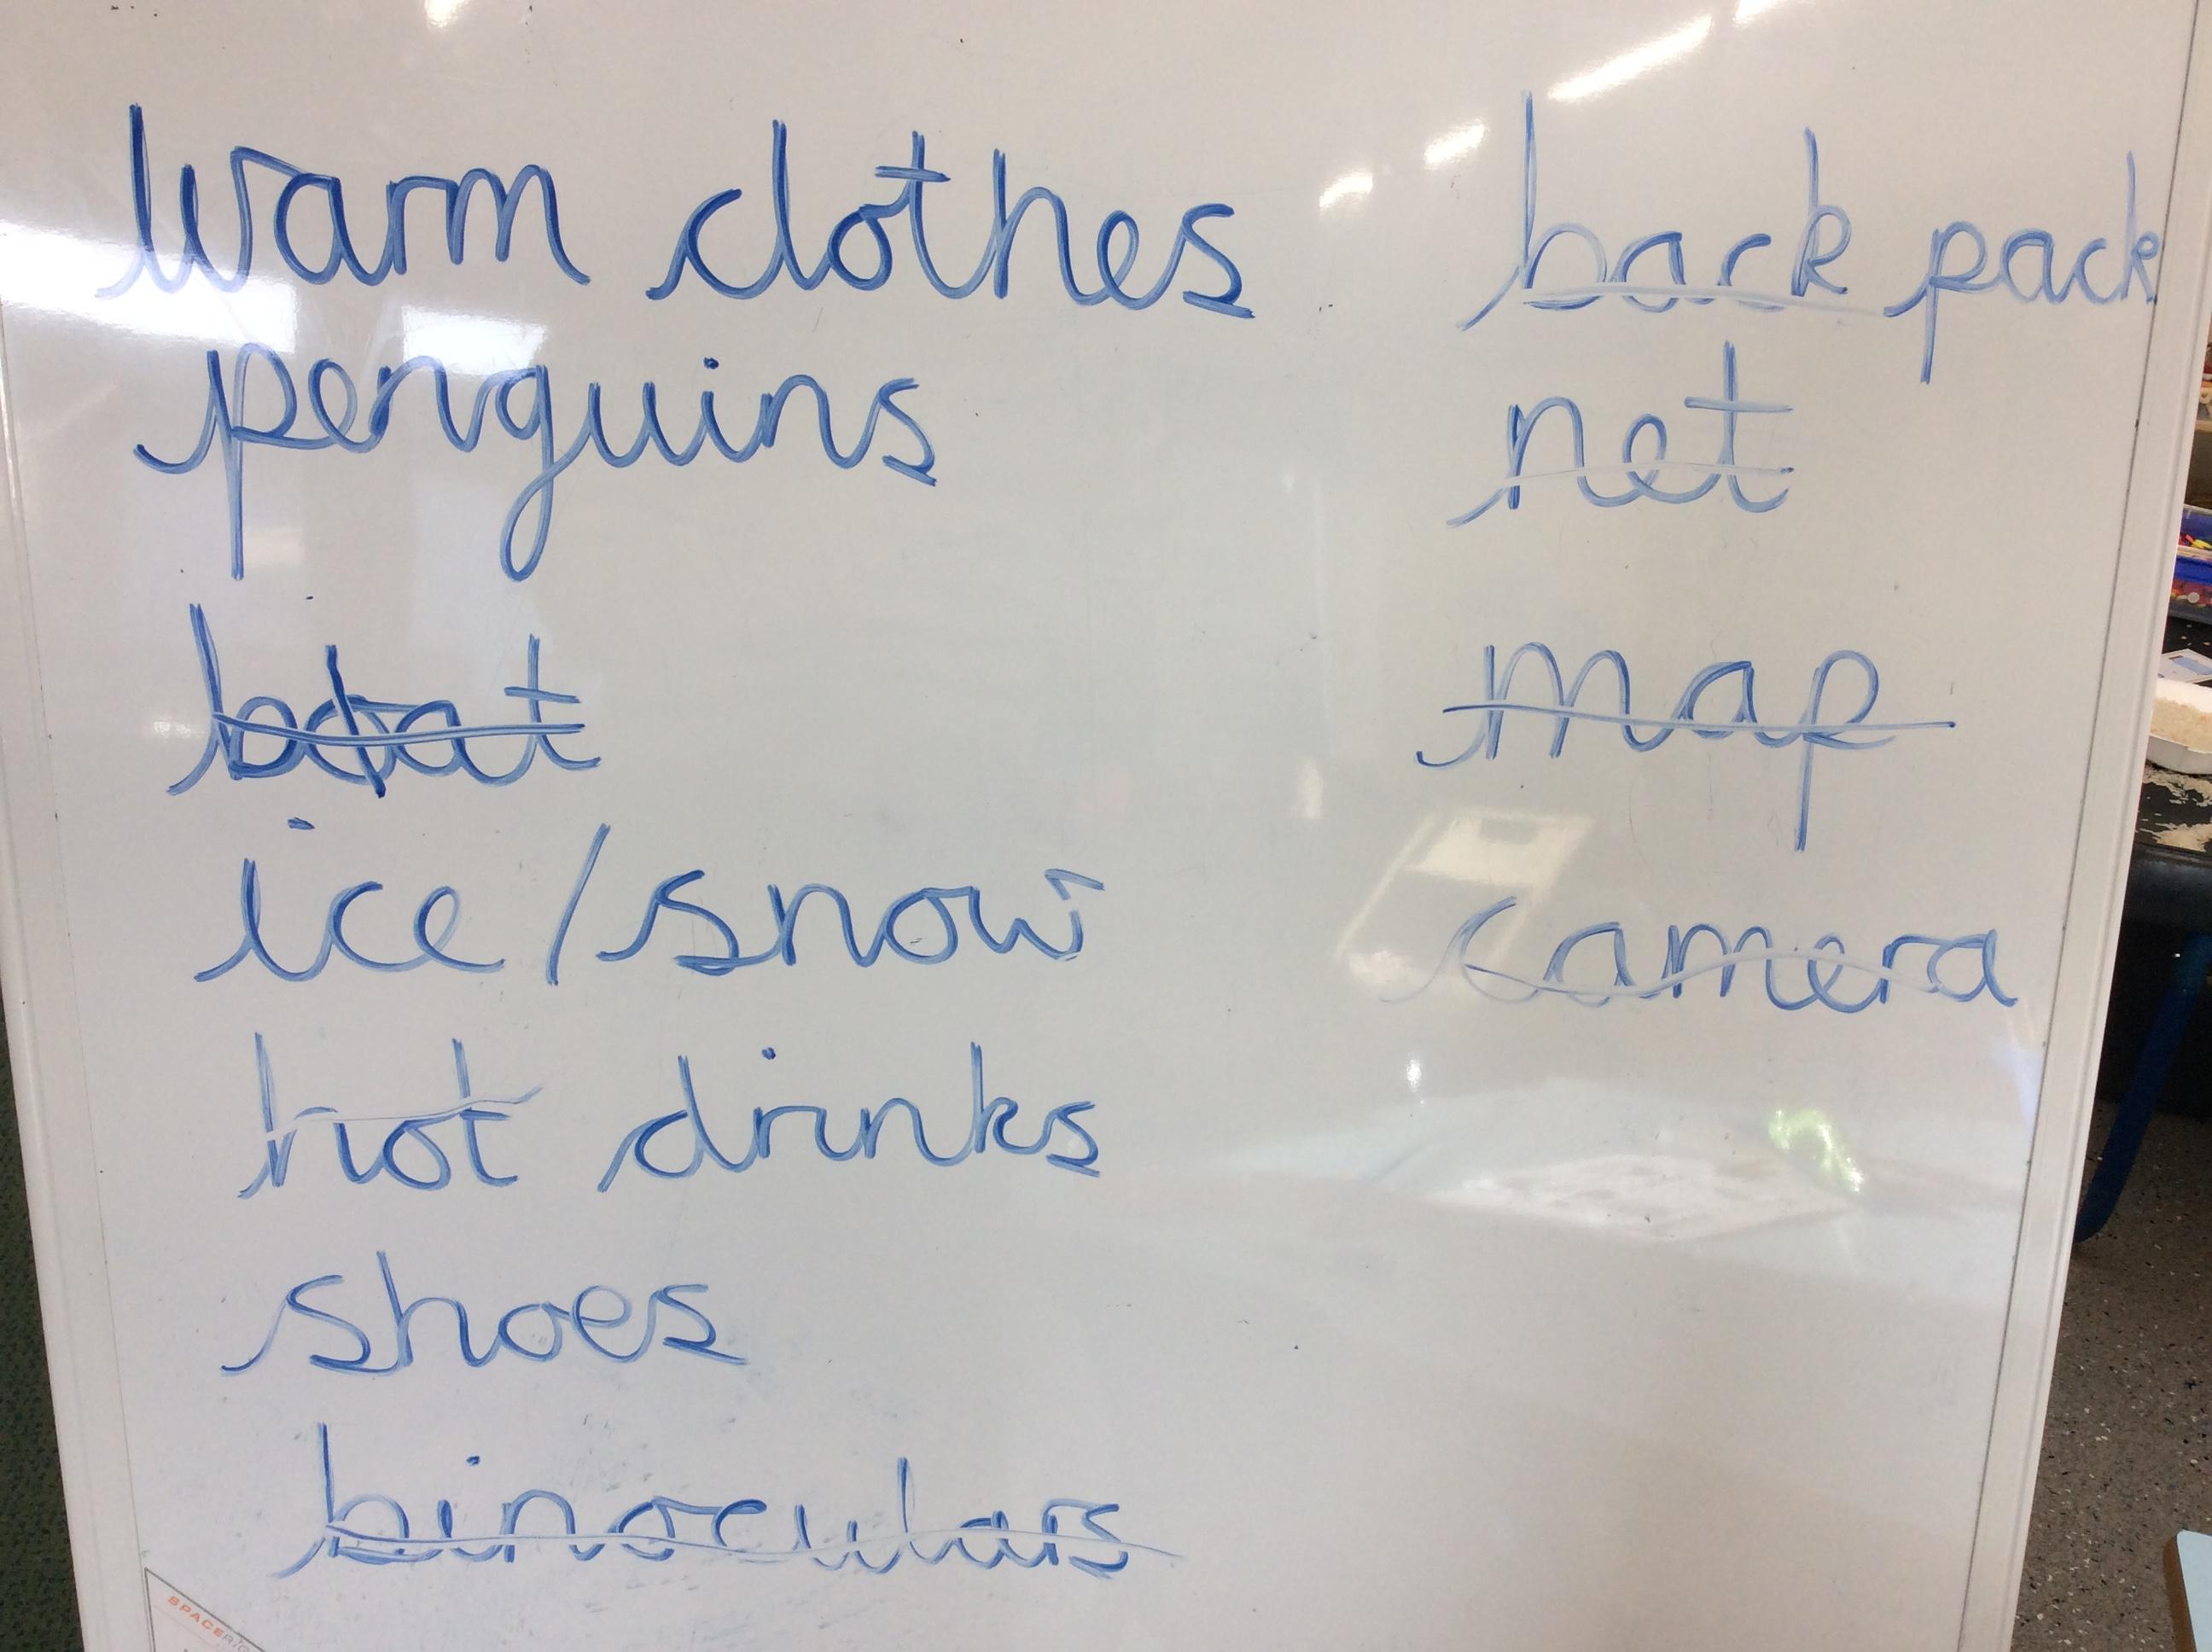 warm clothes
penguins
boat
ice/snow
hot drinks
shoes
binoculars
back pack
net
map
camera